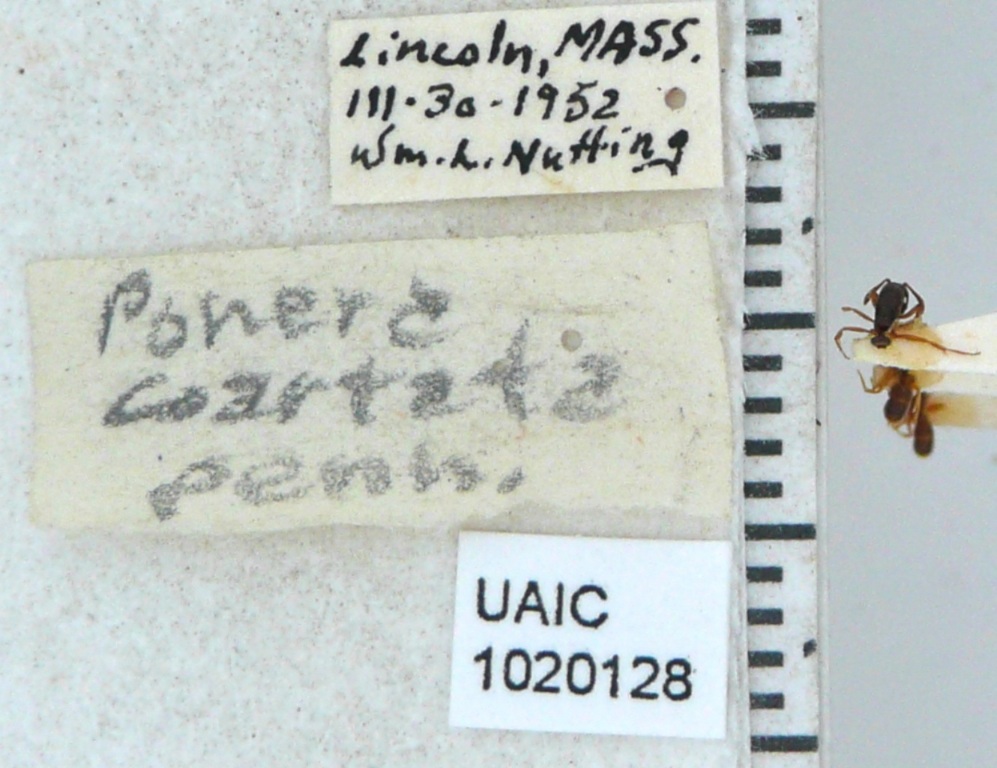 Lincoln, MASS.
III-30-1952
Wm. L. Nutting
Ponera
coartata
penn.
UAIC
1020128